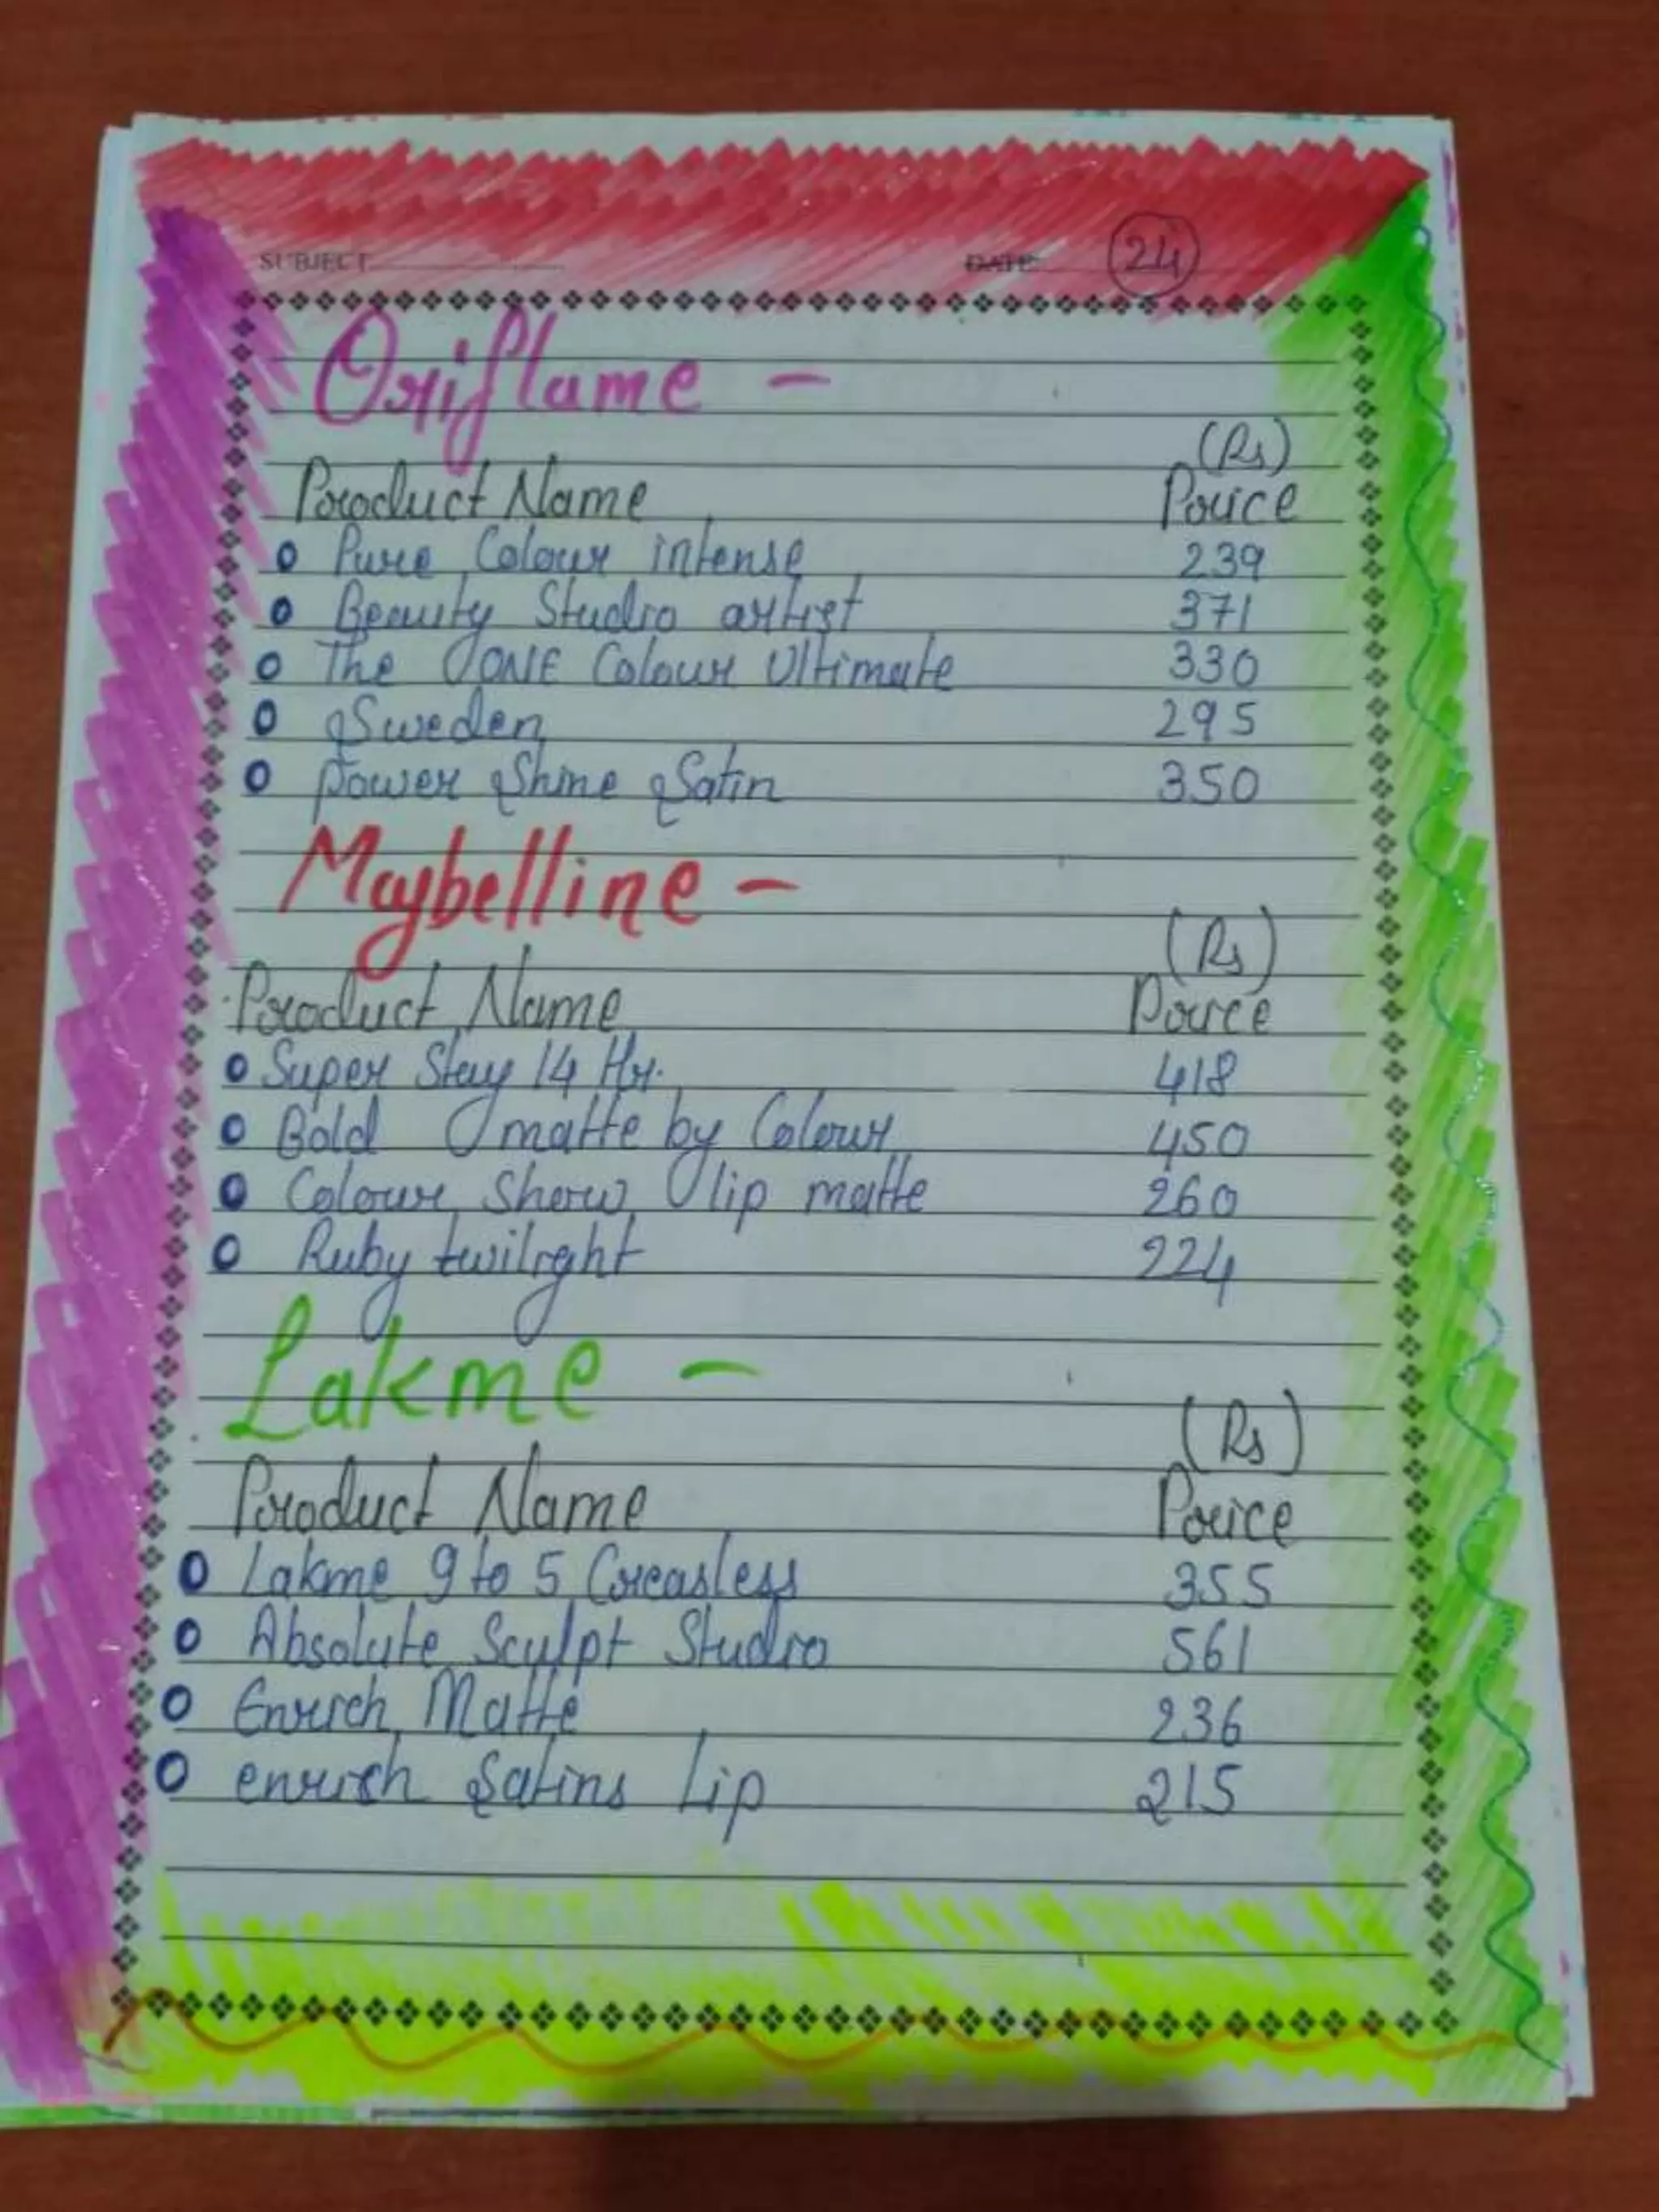 SUBJECT
DATE 24
Oriflame -
(Rs)
Product Name Price
Pure Colour intense 239
Beauty Studio artist 371
The ONE Colour Ultimate 330
Sweden 295
Power Shine Satin 350
Maybelline -
(Rs)
Product Name Price
Super Stay 14 Hr. 418
Bold matte by Colour 450
Colour Show lip matte 260
Ruby twilight 224
Lakme -
(Rs)
Product Name Price
Lakme 9 to 5 Creasless 355
Absolute Sculpt Studio 561
Enrich Matte 236
enrich Satins Lip 215